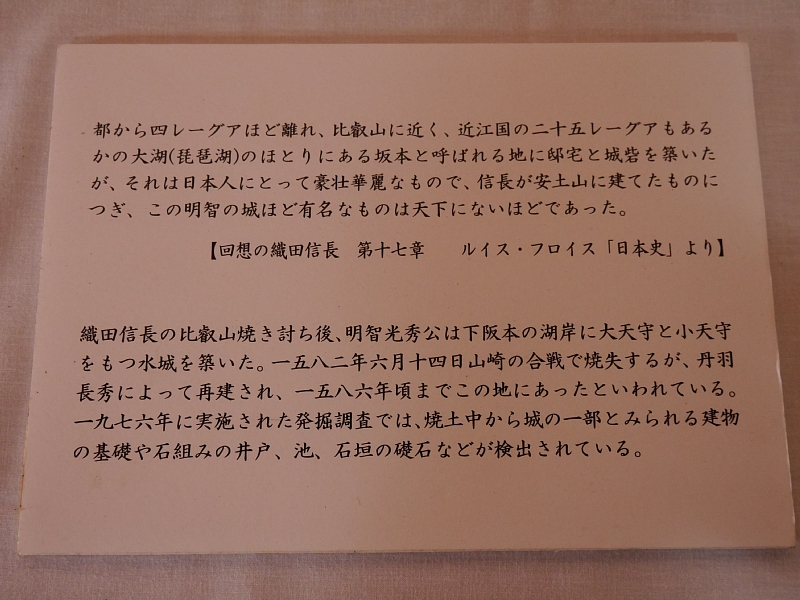 都から四レーグアほど離れ、比叡山に近く、近江国の二十五レーグアもある
かの大湖(琵琶湖)のほとりにある坂本と呼ばれる地に邸宅と城砦を築いた
が、それは日本人にとって豪壮華麗なもので、信長が安土山に建てたものに
つぎ、この明智の城ほど有名なものは天下にないほどであった。
【回想の織田信長　第十七章　　ルイス・フロイス「日本史」より】
織田信長の比叡山焼き討ち後、明智光秀公は下阪本の湖岸に大天守と小天守
をもつ水城を築いた。一五八二年六月十四日山崎の合戦で焼失するが、丹羽
長秀によって再建され、一五八六年頃までこの地にあったといわれている。
一九七六年に実施された発掘調査では、焼土中から城の一部とみられる建物
の基礎や石組みの井戸、池、石垣の礎石などが検出されている。